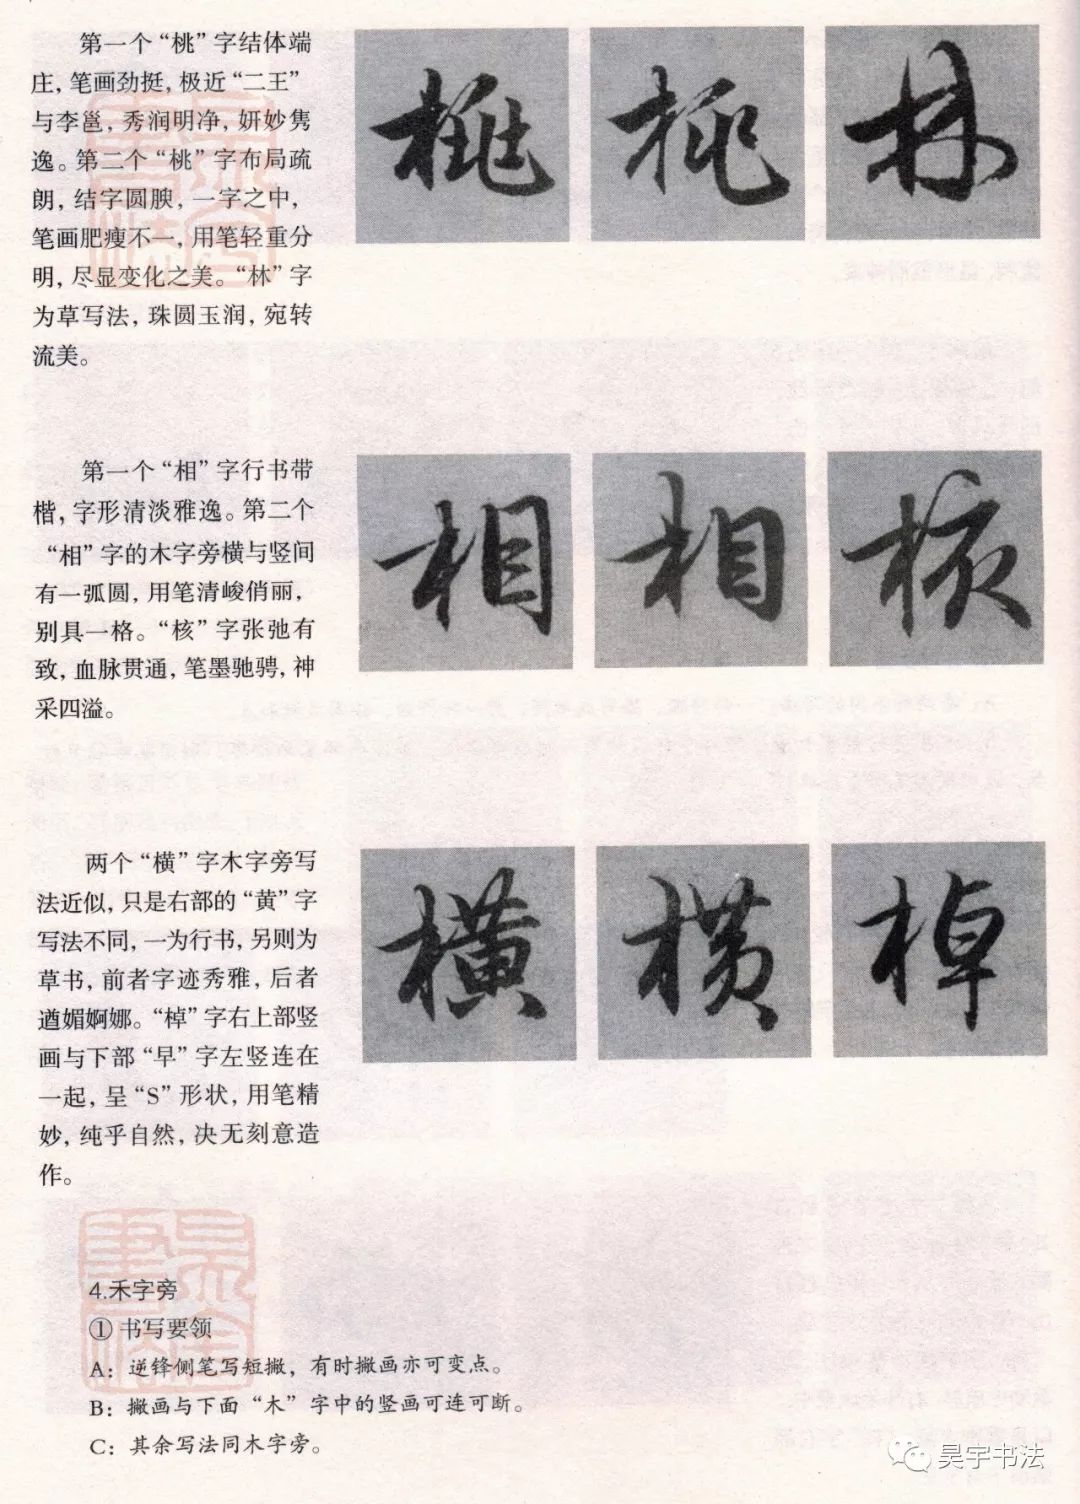 第一个“桃”字结体端
庄，笔画劲挺，极近“二王”
与李邕，秀润明净，妍妙隽
逸。第二个“桃”字布局疏
朗，结字圆腴，一字之中，
笔画肥瘦不一，用笔轻重分
明，尽显变化之美。“林”字
为草写法，珠圆玉润，宛转
流美。
桃 桃 林
第一个“相”字行书带
楷，字形清淡雅逸。第二个
“相”字的木字旁横与竖间
有一弧圆，用笔清峻俏丽，
别具一格。“核”字张弛有
致，血脉贯通，笔墨驰骋，神
采四溢。
相 相 核
两个“横”字木字旁写
法近似，只是右部的“黄”字
写法不同，一为行书，另则为
草书，前者字迹秀雅，后者
遒媚婀娜。“棹”字右上部竖
画与下部“早”字左竖连在
一起，呈“S”形状，用笔精
妙，纯乎自然，决无刻意造
作。
横 横 棹
4.禾字旁
① 书写要领
A：逆锋侧笔写短撇，有时撇画亦可变点。
B：撇画与下面“木”字中的竖画可连可断。
C：其余写法同木字旁。
昊宇书法